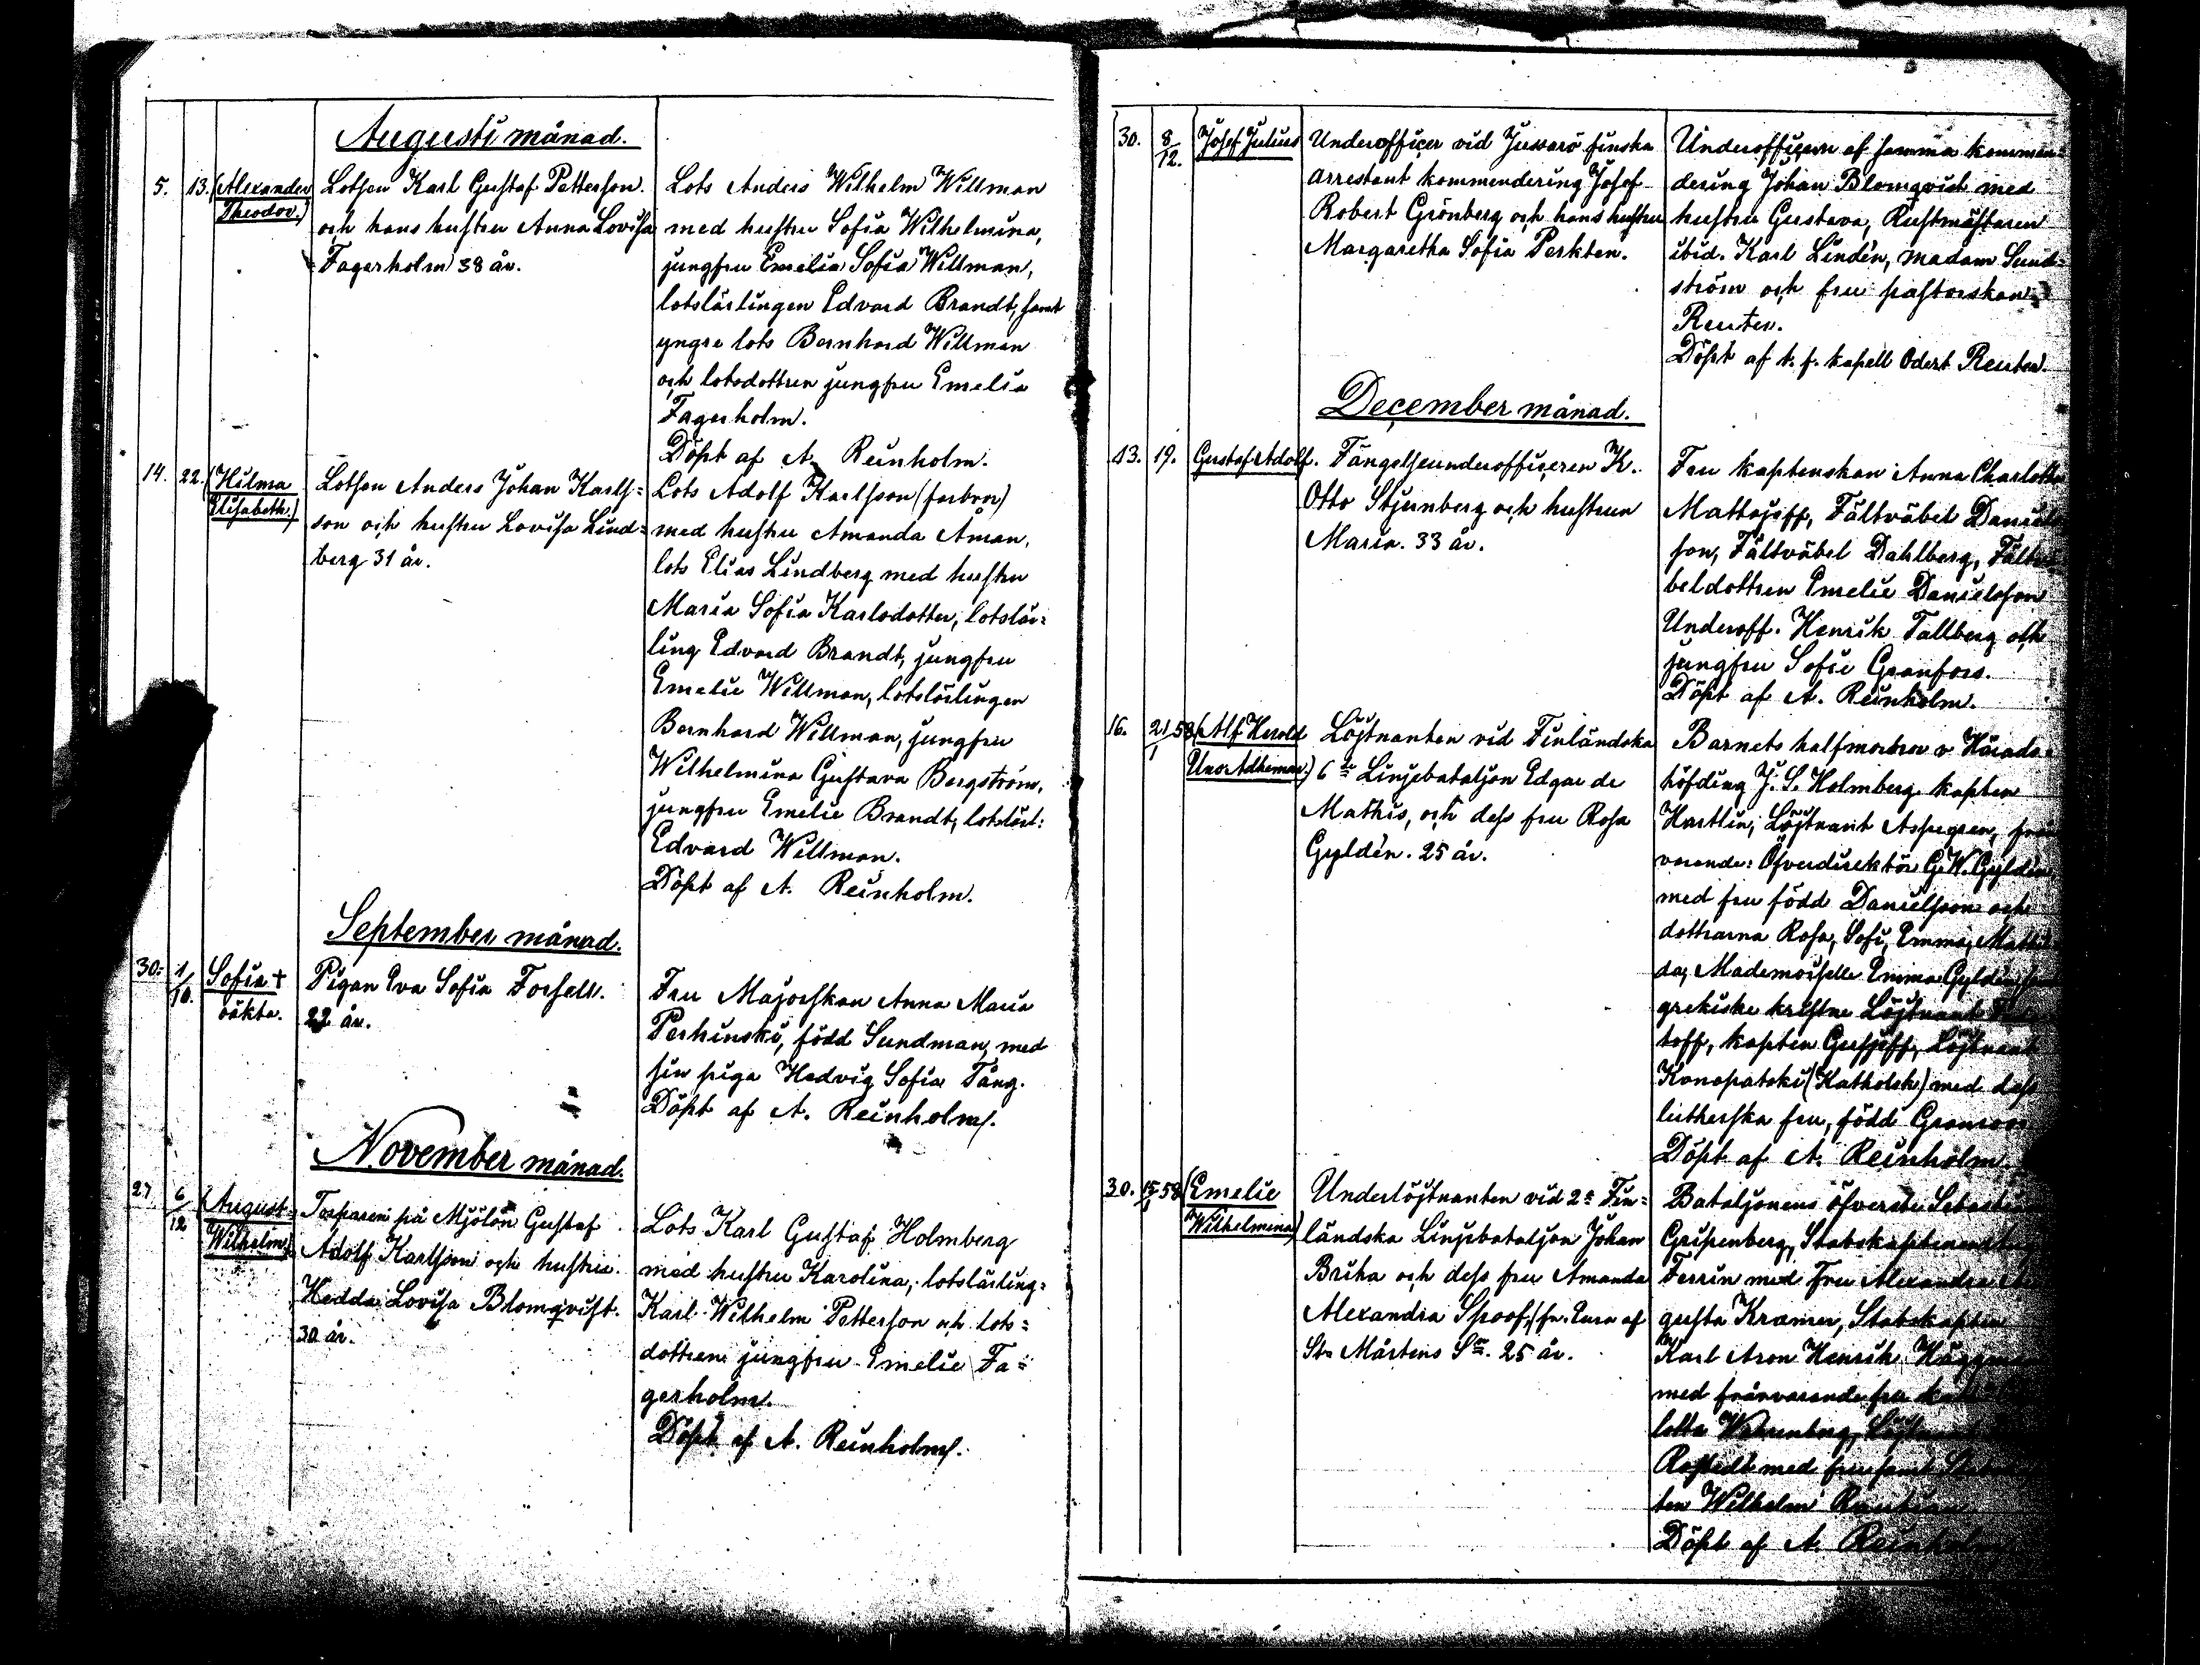 Augusti månad.
5. 13. (Alexander Theodor.)
Lotsen Karl Gustaf Petterson.
och hans hustru Anna Lovisa
Fagerholm 38 år.
Lots Anders Wilhelm Willman
med hustru Sofia Wilhelmina,
jungfru Emelia Sofia Willman,
lotslärlingen Edvard Brandt, samt
yngre lots Bernhard Willman
och lotsdottren jungfru Emelia
Fagerholm.
Döpt af A. Reinholm.
14. 22. (Hilma Elisabeth.)
Lotsen Anders Johan Karls=
son och hustru Lovisa Lind=
berg 31 år.
Lots Adolf Karlsson (farbror)
med hustru Amanda Åman,
lots Elias Lindberg med hustru
Maria Sofia Karlsdotter, lotslär=
ling Edvard Brandt, jungfru
Emelie Willman, lotslärlingen
Bernhard Willman, jungfru
Wilhelmina Gustava Bergström,
jungfru Emelie Brandt, lotslärl:
Edvard Willman.
Döpt af A. Reinholm.
September månad.
30. 1/10. Sofia +
oäkta.
Pigan Eva Sofia Forsell.
22 år.
Fru Majorskan Anna Maria
Perhinski, född Sundman, med
sin piga Hedvig Sofia Tång.
Döpt af A. Reinholm.
November månad.
27. 6/12 (August Wilhelm)
Torparen på Mjölön Gustaf
Adolf Karlsson och hustru
Hedda Lovisa Blomqvist.
30 år.
Lots Karl Gustaf Holmberg
med hustru Karolina, lotslärling=
Karl Wilhelm Petterson och lots=
dottren jungfru Emelie Fa=
gerholm.
Döpt af A. Reinholm.
30. 8/12. Josef Julius
Underofficer vid Jussarö finska
arrestant kommendering Josef
Robert Grönberg och hans hustru
Margaretha Sofia Perkten.
Underofficern af samma kommen=
dering Johan Blomqvist med
hustru Gustava, Rustmästaren
ibid. Karl Lindén, madam Sund=
ström och fru pastorskan
Reuter.
Döpt af t. f. kapell Odert Reuter.
December månad.
13. 19. Gustaf Adolf.
Fängelseunderofficeren K.
Otto Stjernberg och hustrun
Maria. 33 år.
Fru kaptenskan Anna Charlotta
Mattejeff, Fältväbel Daniels
son, Fältväbel Dahlberg, Fältvä
beldottren Emelie Danielsson
Underoff. Henrik Tallberg och
jungfru Sofie Granfors.
Döpt af A. Reinholm.
16. 21/1 58 (Alf Harold Uno Adhemar.)
Löjtnanten vid Finländska
6te Linjebataljon Edgar de
Mathis, och dess fru Rosa
Gyldén. 25 år.
Barnets halfmorbror v. Härads=
höfding J. S. Holmberg kapten
Hartlin, Löjtnant Aspegren, från
varande: Öfverdirektör G. W. Gyldén
med fru född Danielsson och
dottrarna Rosa, Sofi, Emma, Mathil
da, Mademoiselle Emma Gyldén,
grekiske kristne Löjtnant
toff, kapten Gusjeff, Löjtnant
Konopatski (Katholsk) med dess
lutherska fru, född Granroos
Döpt af A. Reinholm.
30. 15/1 58 (Emelie Wilhelmina)
Underlöjtnanten vid 2a Fin=
ländska Linjebataljon Johan
Briha och dess fru Amanda
Alexandra Spoof, fr. Eura af
St. Mårtens Sn. 25 år.
Bataljonens öfverste Sebastian
Gripenberg, Stabskaptenen
Ferrin med Fru Alexandra
gusta Kramer, Stabskapten
Karl Aron Henrik Häggman
med frånvarande fru
lotta Wahrenberg, Löjtnant
med fru samt
ten Wilhelm
Döpt af A. Reinholm